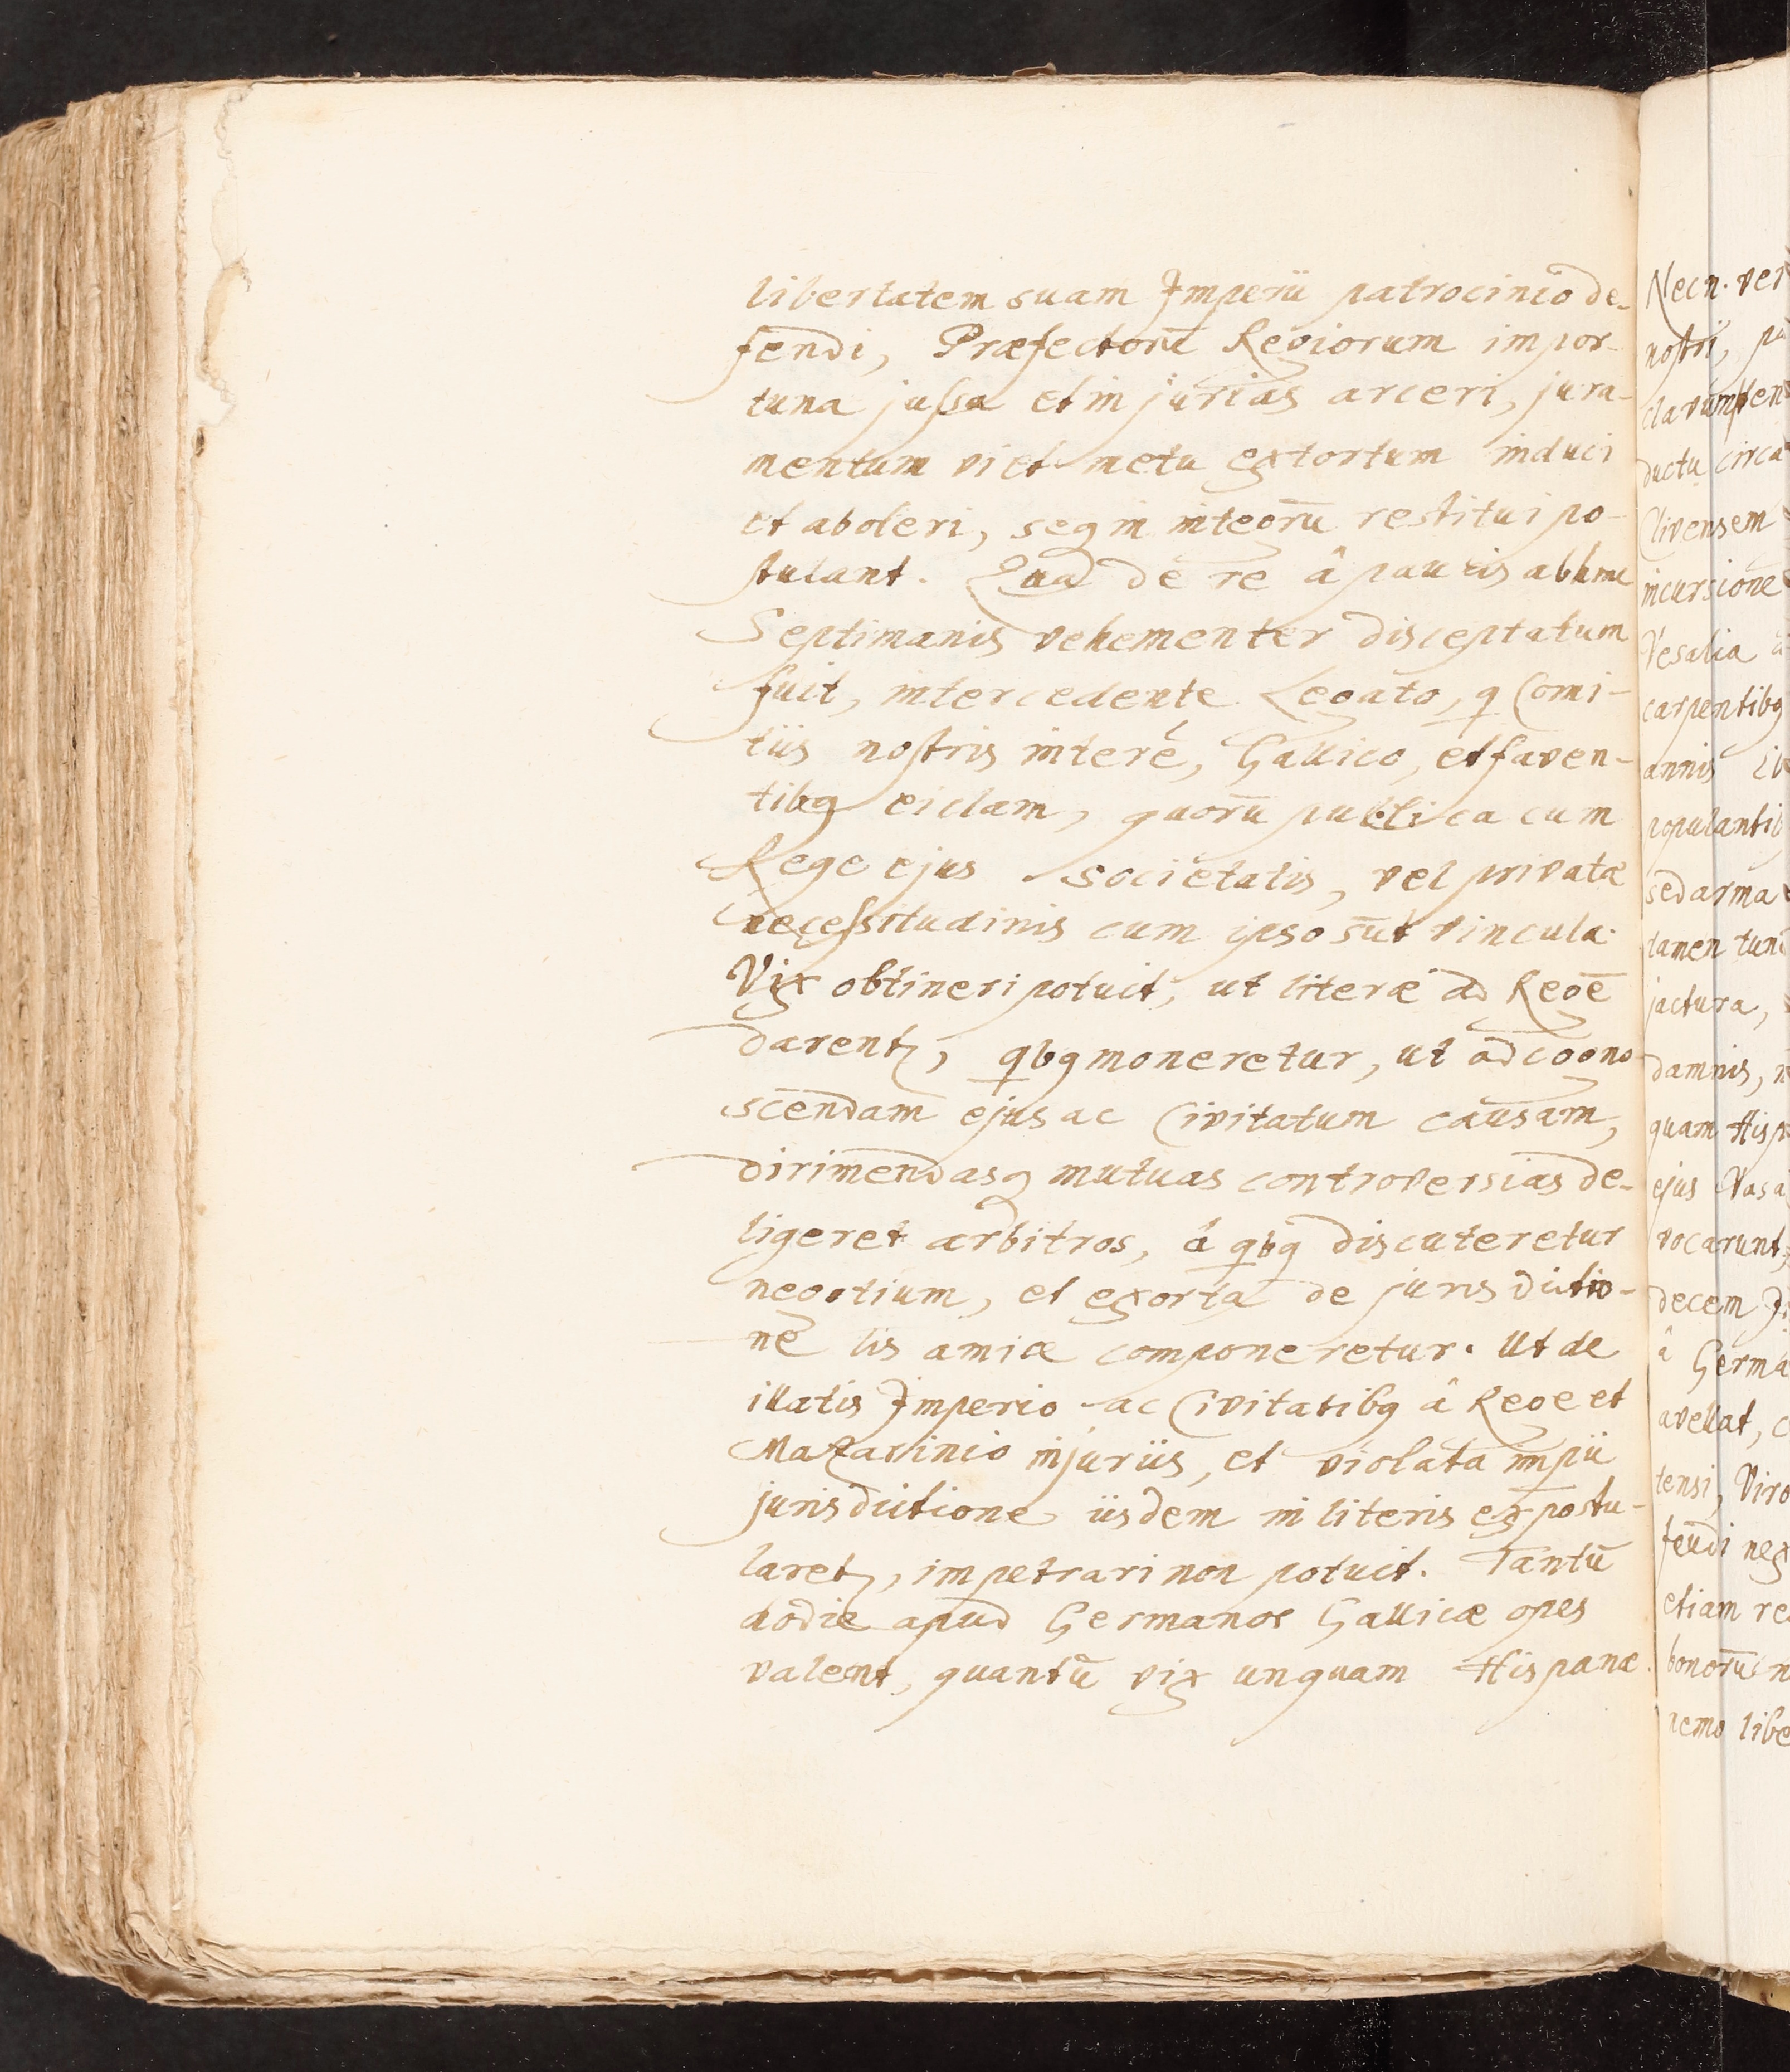 libertatem suam Imperii patrocinio de-
fendi, Præfectorū Regiorum impor-
tuna jussa et injurias arceri, jura-
mentum vi et metu extortum induci
et aboleri, seq in integrū restitui po-
stulant. Qua de re â paucis abhinc
Septimanis vehementer disceptatum
fuit, intercedente Legato, q Comi-
tiis nostris interé, Gallico, et faven-
tibq ei clam, quorū publica cum
Rege ejus societatis, vel privatæ
necessitudinis cum ipso sūt vincula.
Vix obtineri potuit, ut literæ ad Regē
darent, qbq moneretur, ut ad cogno-
scendam ejus ac Civitatum causam,
dirimendasq mutuas controversias de-
ligeret arbitros, â qbq discuteretur
negotium, et exorta de jurisdictio-
ne lis amice componeretur. Ut de
illatis Imperio ac Civitatibq â Rege et
Mazarinio injuriis, et violata impii
jurisdictione iisdem in literis expostu-
laret, impetrari non potuit. Tantū
hodie apud Germanos Gallicæ opes
valent, quantū vix unquam Hispanæ.
Necn. ver
nostri, pa
ductu circa
Clivensem
incursione
Vesalia a
carpentibq
annis
populantib
sed arma
tamen tun
jactura,
damnis,
quam Hisp
ejus Vasa
vocarunt,
decem
â Germa
avellat,
tensi, Viro
feudi nex
etiam re
bonorū
nemo libe